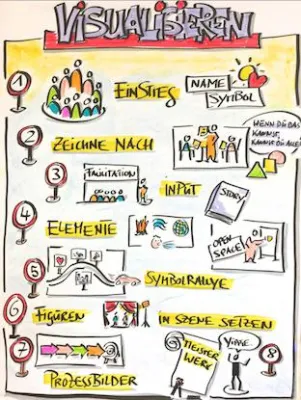 VISUALISIEREN
1
EINSTIEG
NAME
SYMBOL
2
ZEICHNE NACH
WENN DU DAS
KANNST,
KANNST DU ALLES
3
FACILITATION
INPUT
STORY
4
ELEMENTE
OPEN
SPACE
5
SYMBOLRALLYE
6
FIGUREN
IN SZENE SETZEN
7
PROZESSBILDER
MEISTER
WERK
YIPPIE
8